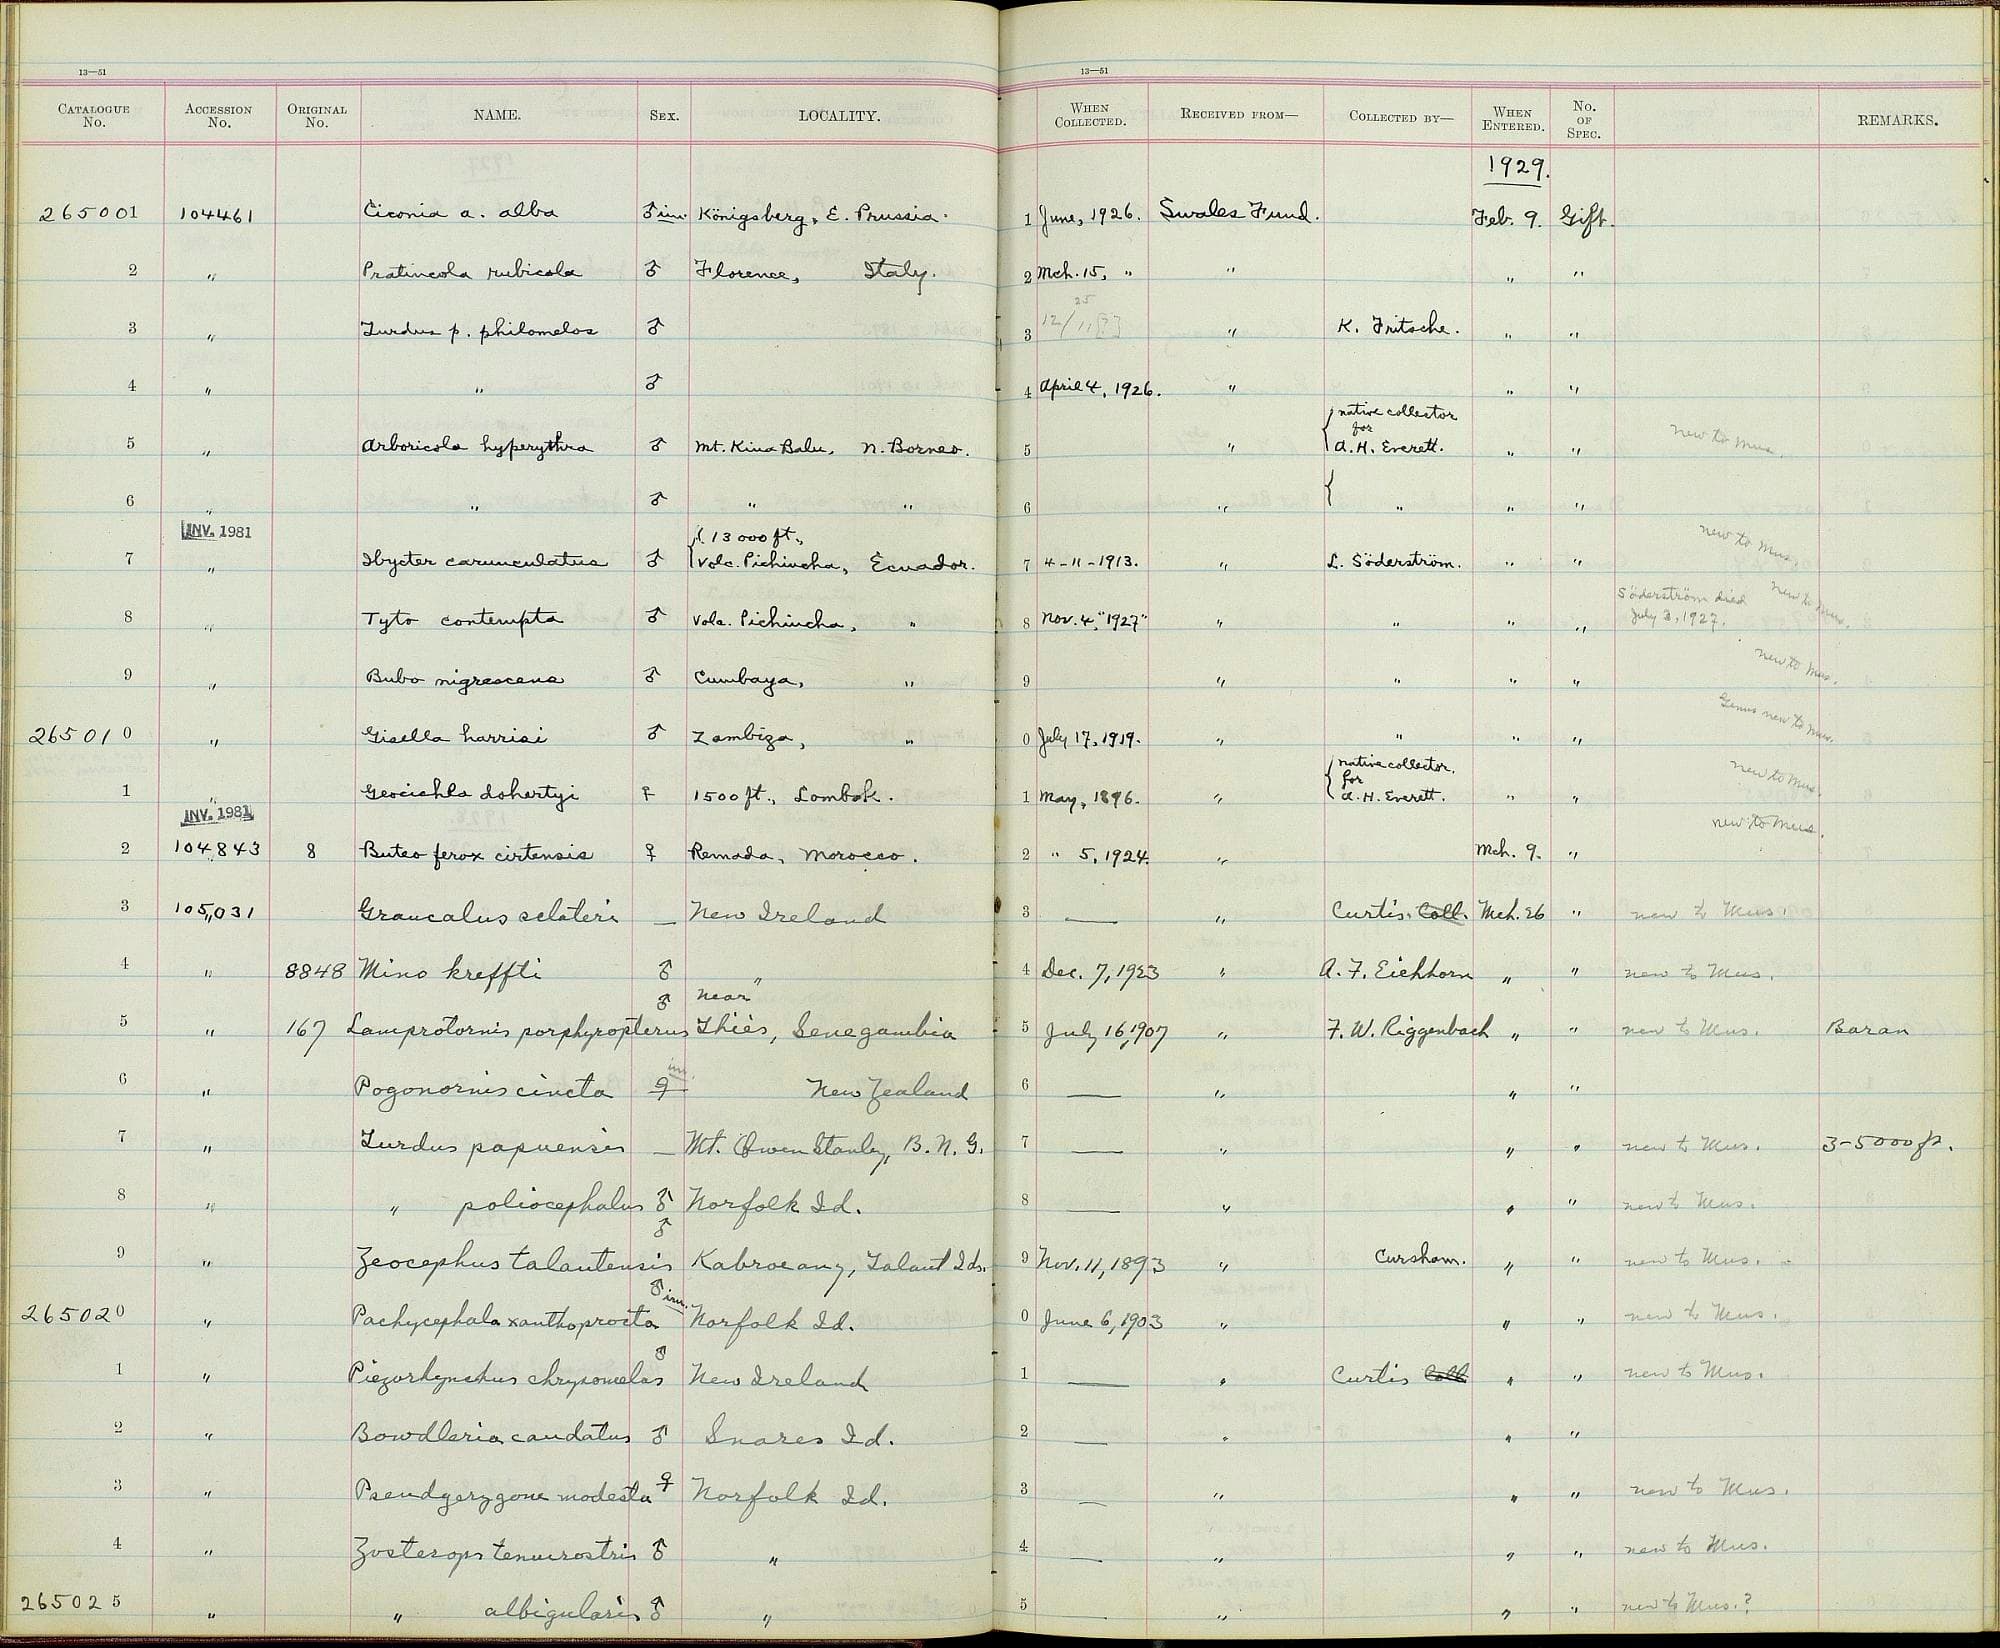 13—51 13—51
CATALOGUE No. ACCESSION No. ORIGINAL No. NAME. SEX. LOCALITY. WHEN COLLECTED. RECEIVED FROM— COLLECTED BY— WHEN ENTERED. No. OF SPEC. REMARKS.
1929.
265001 104461 Ciconia a. alba ♂ im. Königsberg, E. Prussia. 1 June, 1926. Swales Fund. Feb. 9. Gift.
2 " Pratincola rubicola ♂ Florence, Italy. 2 Mch. 15, " " " "
25
3 " Turdus p. philomelos ♂ 3 12/11[?] " K. Fritsche. " "
4 " " ♂ 4 April 4, 1926. " " "
native collector
for
5 " Arboricola hyperythra ♂ Mt. Kina Balu, N. Borneo. 5 " A. H. Everett. " " new to Mus.
6 " " ♂ " " 6 " " " "
INV. 1981 13000 ft.,
7 " Ibycter carunculatus ♂ Volc. Pichincha, Ecuador. 7 4-11-1913. " L. Söderström. " " new to Mus.
8 " Tyto contempta ♂ Volc. Pichincha, " 8 Nov. 4, "1927" " " " " Söderström died July 3, 1927. new to Mus.
9 " Bubo nigrescens ♂ Cumbaya, " 9 " " " " new to Mus.
265010 " Gisella harrisi ♂ Zambiza, " 0 July 17, 1919. " " " " Genus new to Mus.
native collector.
for
1 " Geocichla dohertyi ♀ 1500 ft., Lombok. 1 May, 1896. " A. H. Everett. " " new to Mus.
INV. 1981
2 104,843 8 Buteo ferox cirtensis ♀ Remada, Morocco. 2 " 5, 1924. " Mch. 9. " new to Mus.
3 105,031 Graucalus sclateri — New Ireland 3 — " Curtis. Coll. Mch. 26 " new to Mus.
4 " 8848 Mino kreffti ♂ " 4 Dec. 7, 1923 " A. F. Eichhorn " " new to Mus.
near
5 " 167 Lamprotornis porphyropterus ♂ Thiès, Senegambia 5 July 16, 1907 " F. W. Riggenbach " " new to Mus. Baran
im.
6 " Pogonornis cincta ♀ New Zealand 6 — " " "
7 " Turdus papuensis — Mt. Owen Stanley, B. N. G. 7 — " " " new to Mus. 3-5000 ft.
8 " " poliocephalus ♂ Norfolk Id. 8 — " " " new to Mus.
9 " Zeocephus talautensis ♂ Kabroeang, Talaut Ids. 9 Nov. 11, 1893 " Cursham. " " new to Mus.
265020 " Pachycephala xanthoprocta ♂ im. Norfolk Id. 0 June 6, 1903 " " " new to Mus.
1 " Piezorhynchus chrysomelas ♂ New Ireland 1 — " Curtis Coll " " new to Mus.
2 " Bowdleria caudatus ♂ Snares Id. 2 — " " "
3 " Pseudgerygone modesta ♀ Norfolk Id. 3 — " " " new to Mus.
4 " Zosterops tenuirostris ♂ " 4 — " " " new to Mus.
265025 " " albigularis ♂ " 5 — " " " new to Mus.?